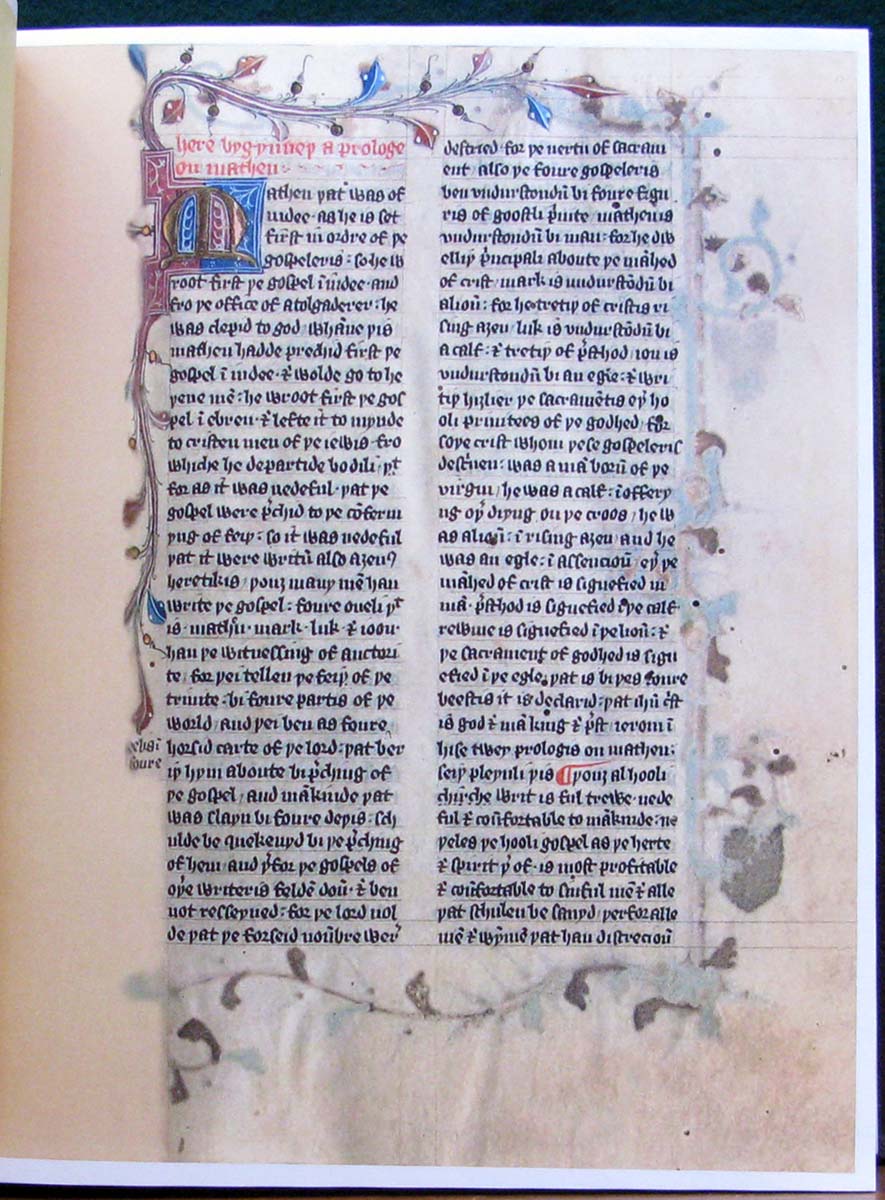 here bygynneþ a prologe
on matheu
Matheu þat was of
iudee · as he is set
first in ordre of þe
gospeleris : so he w
root first þe gospel ī iudee · and
fro þe office of a tolgaderer : he
was clepid to god / whāne þis
matheu hadde prechid first þe
gospel ī iudee · & wolde go to he
þene mē : he wroot first þe gos
pel ī ebreu · & lefte it to mynde
to cristen men of þe iewis · fro
whiche he departide bodili / þᵗ
for as it was nedeful · þat þe
gospel were p̄chid to þe cōferm
yng of feiþ : so it was nedeful
þat it were writū also aȝens
heretikis / þouȝ many mē han
write þe gospel : foure oneli þᵗ
is · mathu · mark · luk · & ioon ·
han þe witnessing of auctori
te / for þei tellen þe feiþ of þe
trinite : bi foure partis of þe
world / and þei ben as foure
horsid carte of þe lord : þat ber
iþ hym aboute bi p̄ching of
þe gospel / and mākinde þat
was slayn bi foure deþis : sch
ulde be quekenyd bi þe p̄ching
of hem and þ̄for þe gospels of
oþ̄e writeris felden doū · & ben
not resseyued : for þe lord nol
de þat þe forseid noūbre wer̄
foure
destried · for þe vertu of sacram
ent / also þe foure gospeleris
ben vndurstondū bi foure figu
ris of goostli p̄uite / matheu is
vndurstondū bi man : for he dw
elliþ p̄ncipali aboute þe māhed
of crist / mark is vndurstōdū bi
a lioū : for he tretiþ of cristis ri
sing aȝen / luk is vndurstōdū bi
a calf : & tretiþ of p̄sthod / ion is
vndurstondū bi an egle : & wri
tiþ hiȝlier þe sacramētis eþ̄ ho
oli priuitees of þe godhed / for
soþe crist whom þese gospeleris
descriuen : was a mā borū of þe
virgin / he was a calf : ī offery
ng oþ̄ diyng on þe croos / he w
as a lioū : ī rising aȝen / and he
was an egle : ī assencioū / eþ̄ þe
māhed of crist is signefied in
mā · p̄sthod is signefied ī þe calf ·
rewme is signefied ī þe lioū : &
þe sacrament of godhed is sign
efied ī þe egle / þat is bi þes foure
beestis it is declarid : þat ihū c̄st
is god & mā king & p̄st / ierom ī
hise twey prologis on matheu :
seiþ pleynli þis ¶ þouȝ al hooli
chirche writ is ful trewe · nede
ful & coūfortable to mākinde : ne
þeles þe hooli gospel as þe herte
& spirit þ̄ of · is most profitable
& coūfortable to sinful mē & alle
þat schulen be sauyd / þerfor alle
mē & wȳmē þat han discrecioū